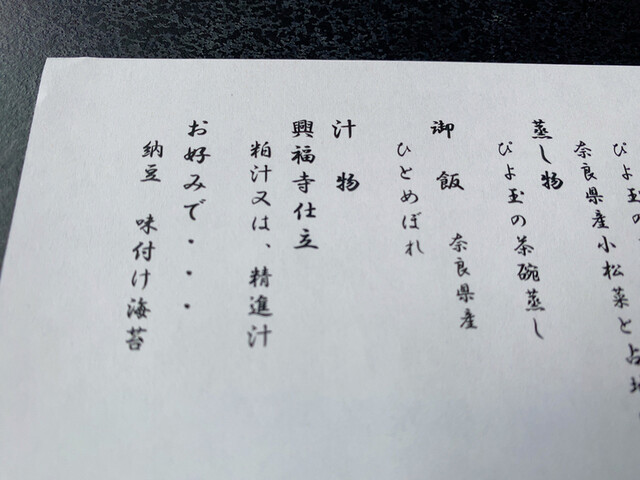 ぴよ玉の
奈良県産小松菜と占地
蒸し物
ぴよ玉の茶碗蒸し
御飯 奈良県産
ひとめぼれ
汁物
興福寺仕立
粕汁又は、精進汁
お好みで・・・
納豆 味付け海苔